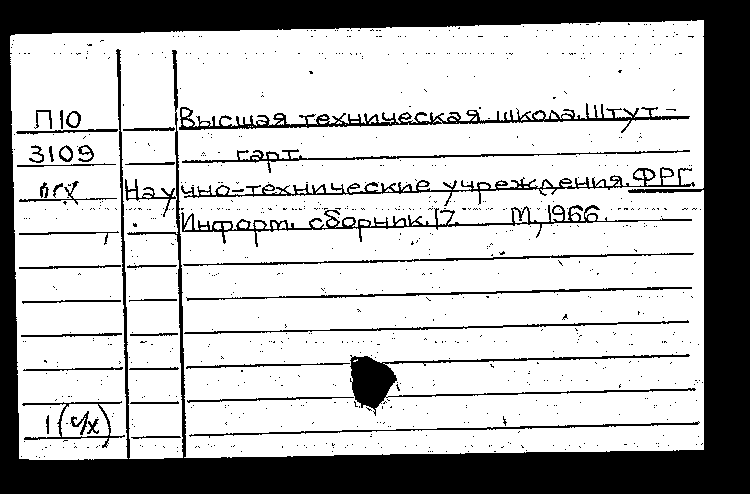 П10 Высшая техническая школа. Штут-
3109 гарт.
Научно-технические учреждения. ФРГ.
Информ. сборник. 17. М., 1966.
1 (с/х)